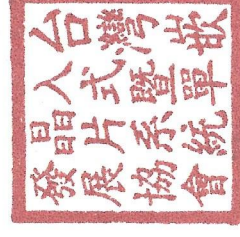 台灣嵌
入式暨單
晶片系統
發展協會